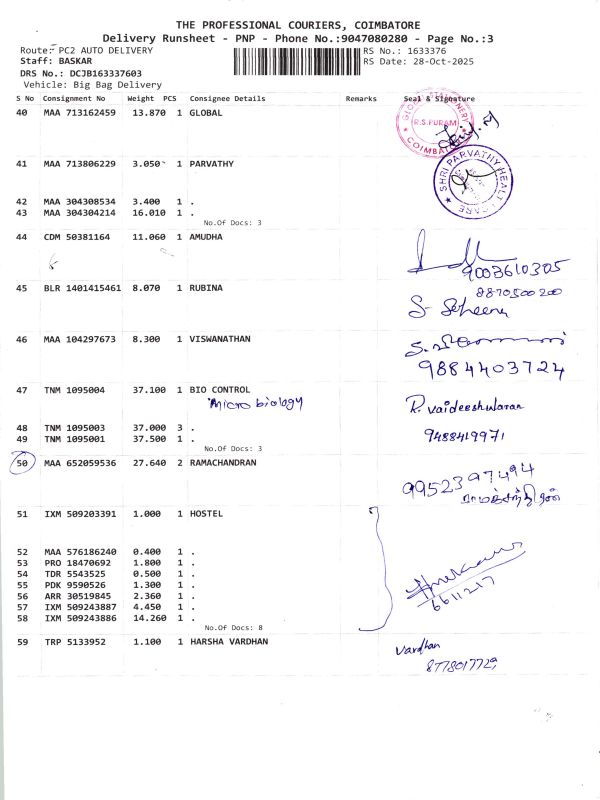 THE PROFESSIONAL COURIERS, COIMBATORE
Delivery Runsheet - PNP - Phone No.:9047080280 - Page No.:3
Route: PC2 AUTO DELIVERY RS No.: 1633376
Staff: BASKAR RS Date: 28-Oct-2025
DRS No.: DCJB163337603
Vehicle: Big Bag Delivery
S No Consignment No Weight PCS Consignee Details Remarks Seal & Signature
40 MAA 713162459 13.870 1 GLOBAL
R.S.PURAM
41 MAA 713806229 3.050 1 PARVATHY
SHRI PARVATHY HEALTH CARE
42 MAA 304308534 3.400 1 .
43 MAA 304304214 16.010 1 .
No.Of Docs: 3
44 CDM 50381164 11.060 1 AMUDHA
9003610305
45 BLR 1401415461 8.070 1 RUBINA
8870500200
46 MAA 104297673 8.300 1 VISWANATHAN
9884403724
47 TNM 1095004 37.100 1 BIO CONTROL
Micro biology R. Vaideeshwaran
48 TNM 1095003 37.000 3 .
49 TNM 1095001 37.500 1 . 9488419971
No.Of Docs: 3
50 MAA 652059536 27.640 2 RAMACHANDRAN
9952397494
ராமச்சந்திரன்
51 IXM 509203391 1.000 1 HOSTEL
52 MAA 576186240 0.400 1 .
53 PRO 18470692 1.800 1 .
54 TDR 5543525 0.500 1 .
55 PDK 9590526 1.300 1 .
56 ARR 30519845 2.360 1 .
57 IXM 509243887 4.450 1 .
58 IXM 509243886 14.260 1 .
6611217
No.Of Docs: 8
59 TRP 5133952 1.100 1 HARSHA VARDHAN
Vardhan
8778017729